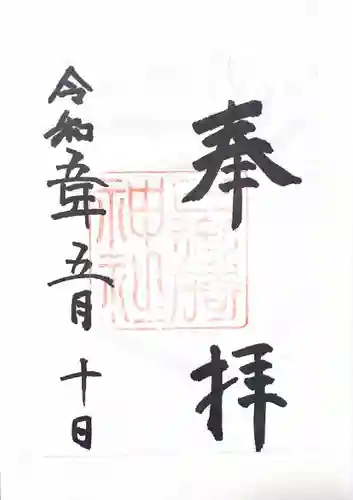 奉拝
令和五年五月十日
神社